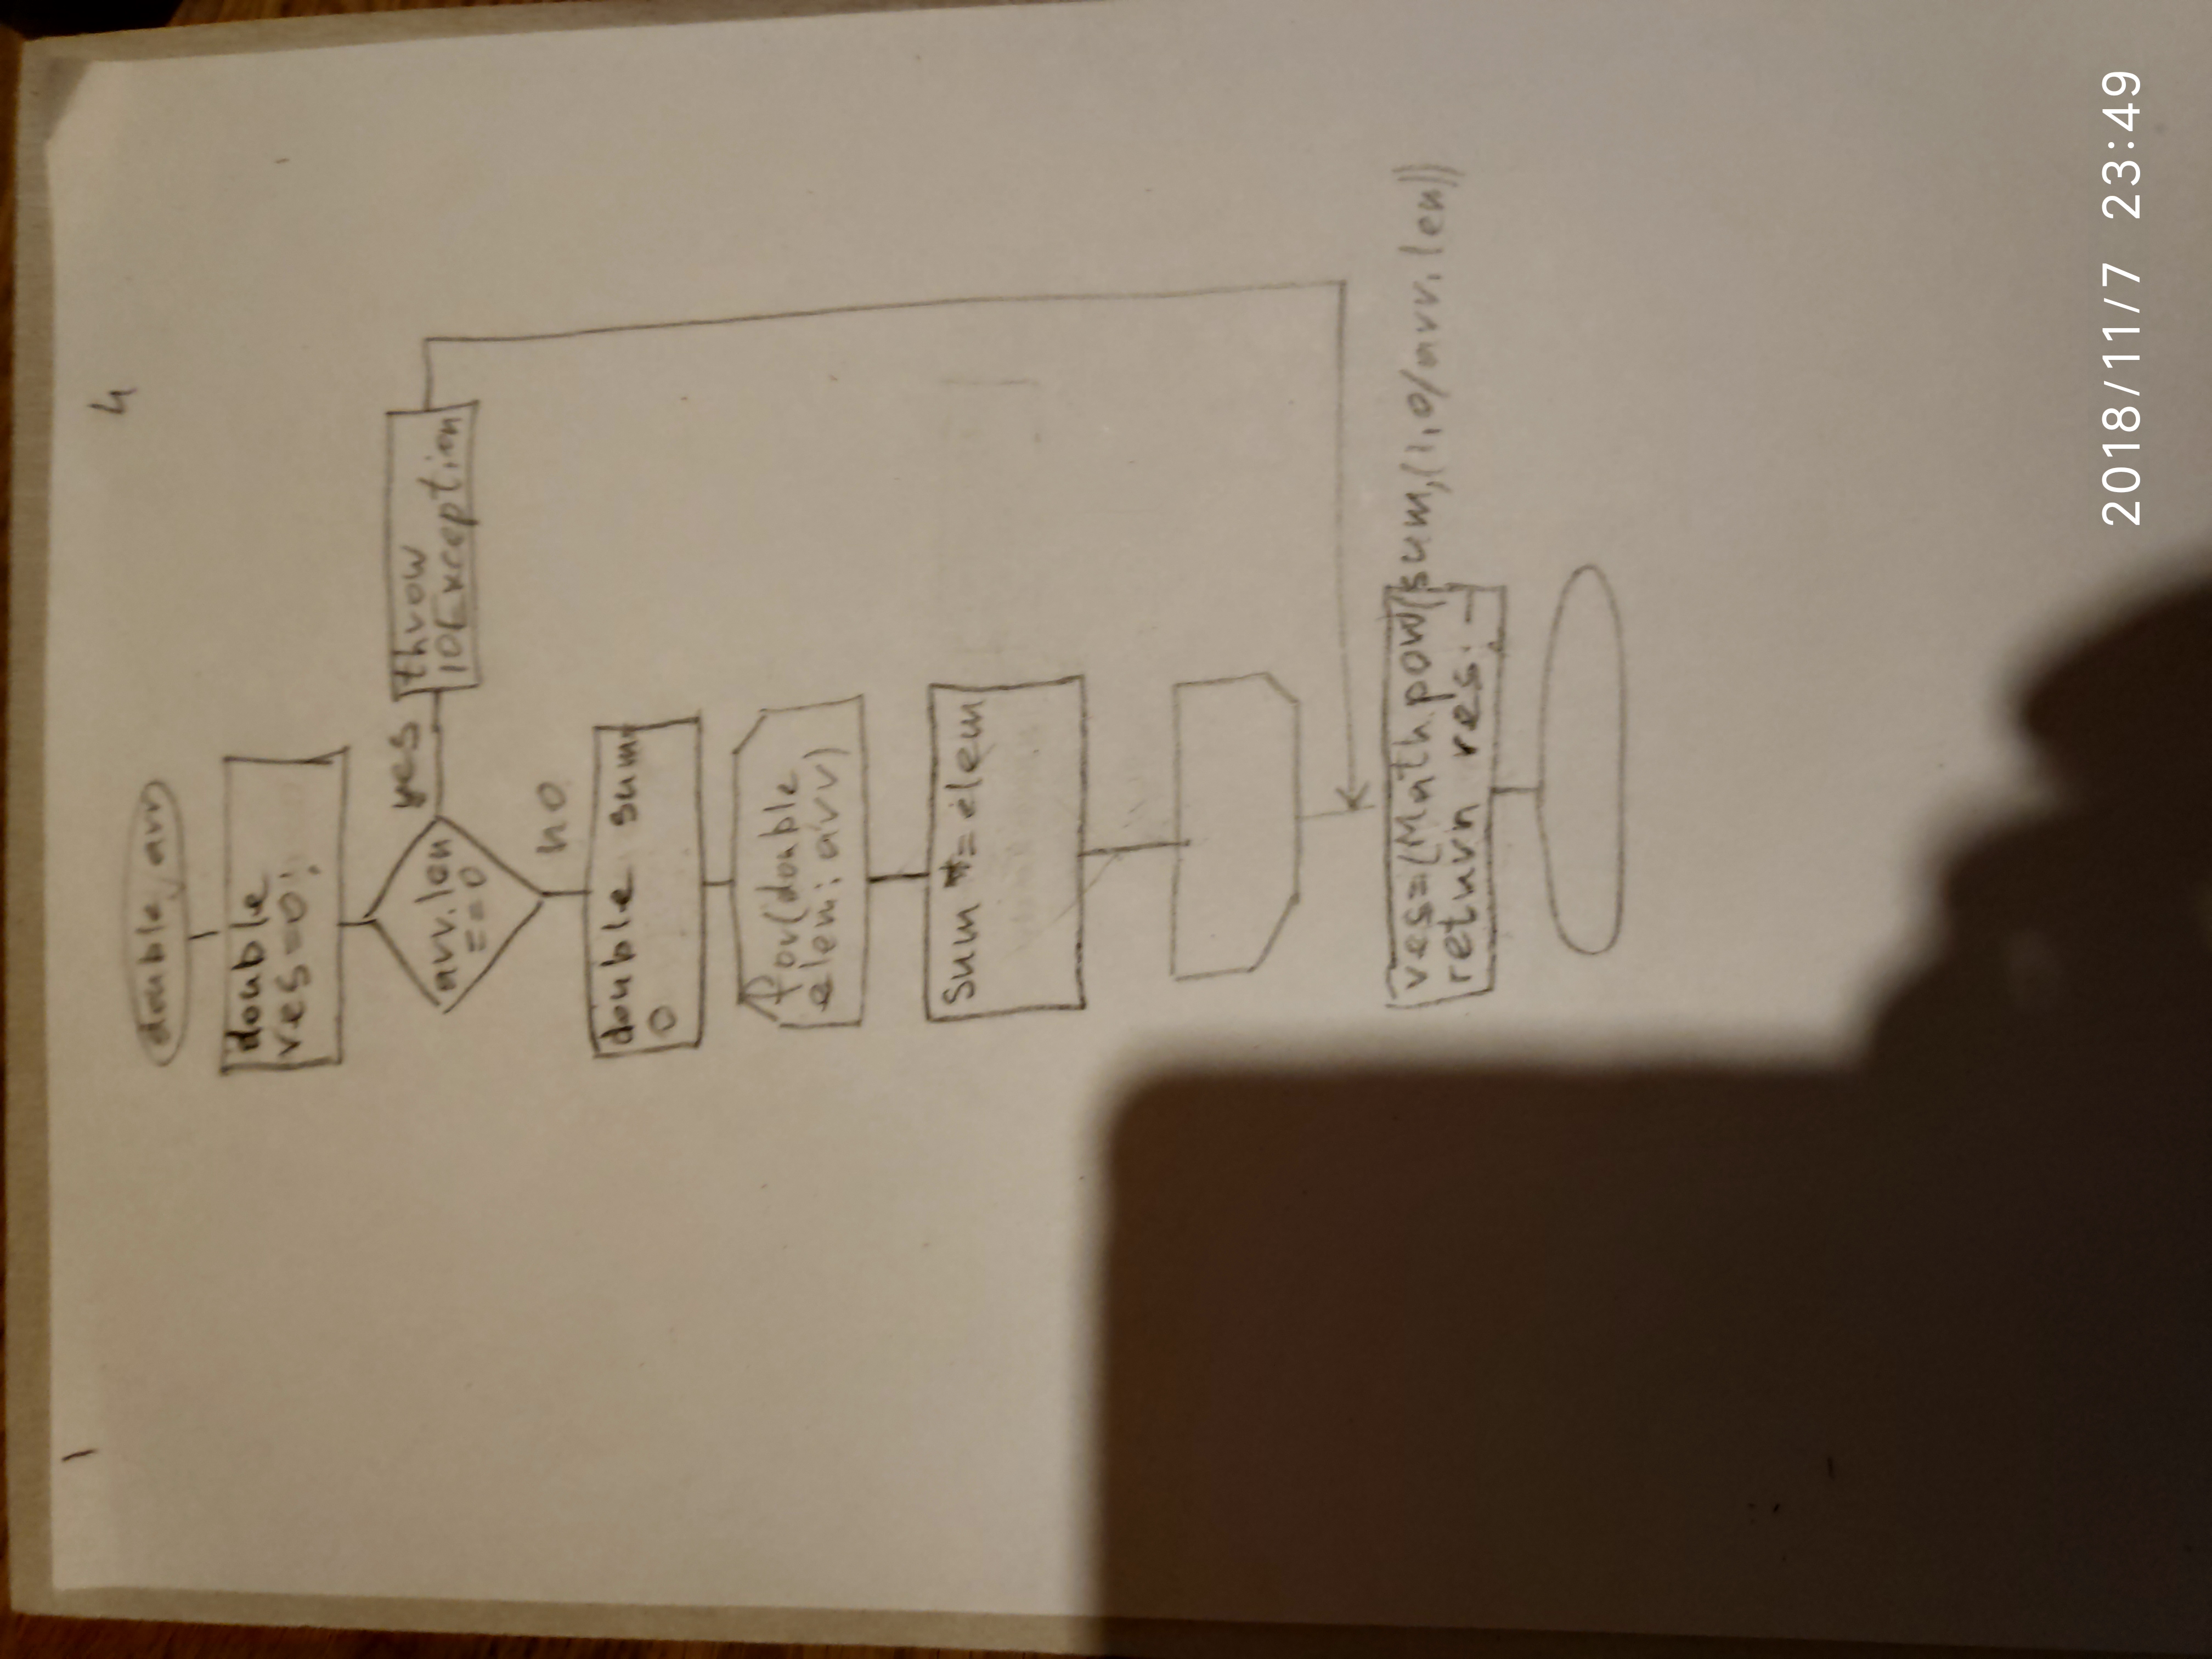 1
4
double, arr
double
res=0;
arr.len
==0
yes
throw
IOException
no
double sum=
0
for(double
elem: arr)
sum *= elem
res=(Math.pow(sum,(1,0/arr.len))
return res;
2018/11/7 23:49